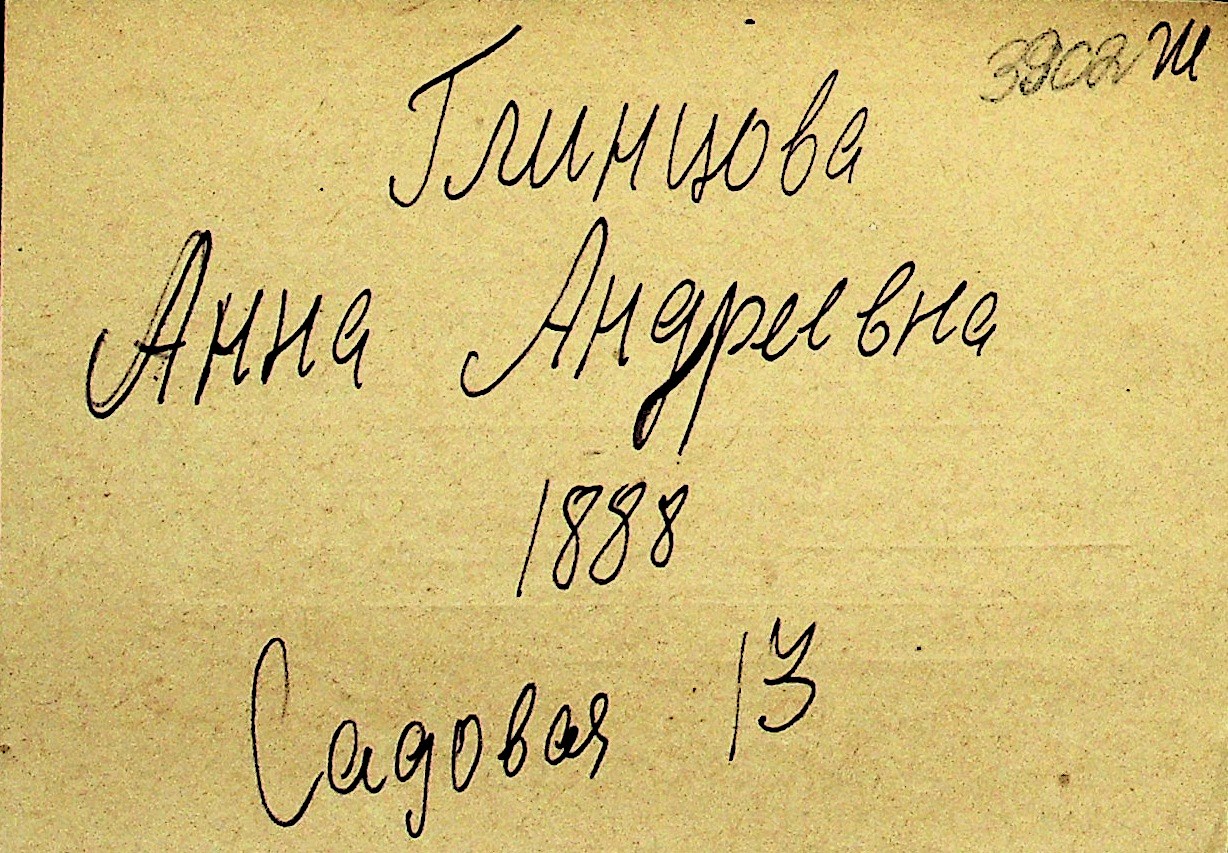 3902 Ж
Глинцова
Анна Андреевна
1888
Садовая 13